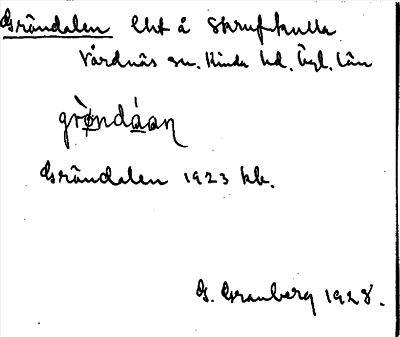 Gröndalen lht å Skrufkulla
Vårdnäs sn. Kinda hd. Ögl. län
grø̀ndáan
Gröndalen 1923 kk.
G. Granberg 1928.